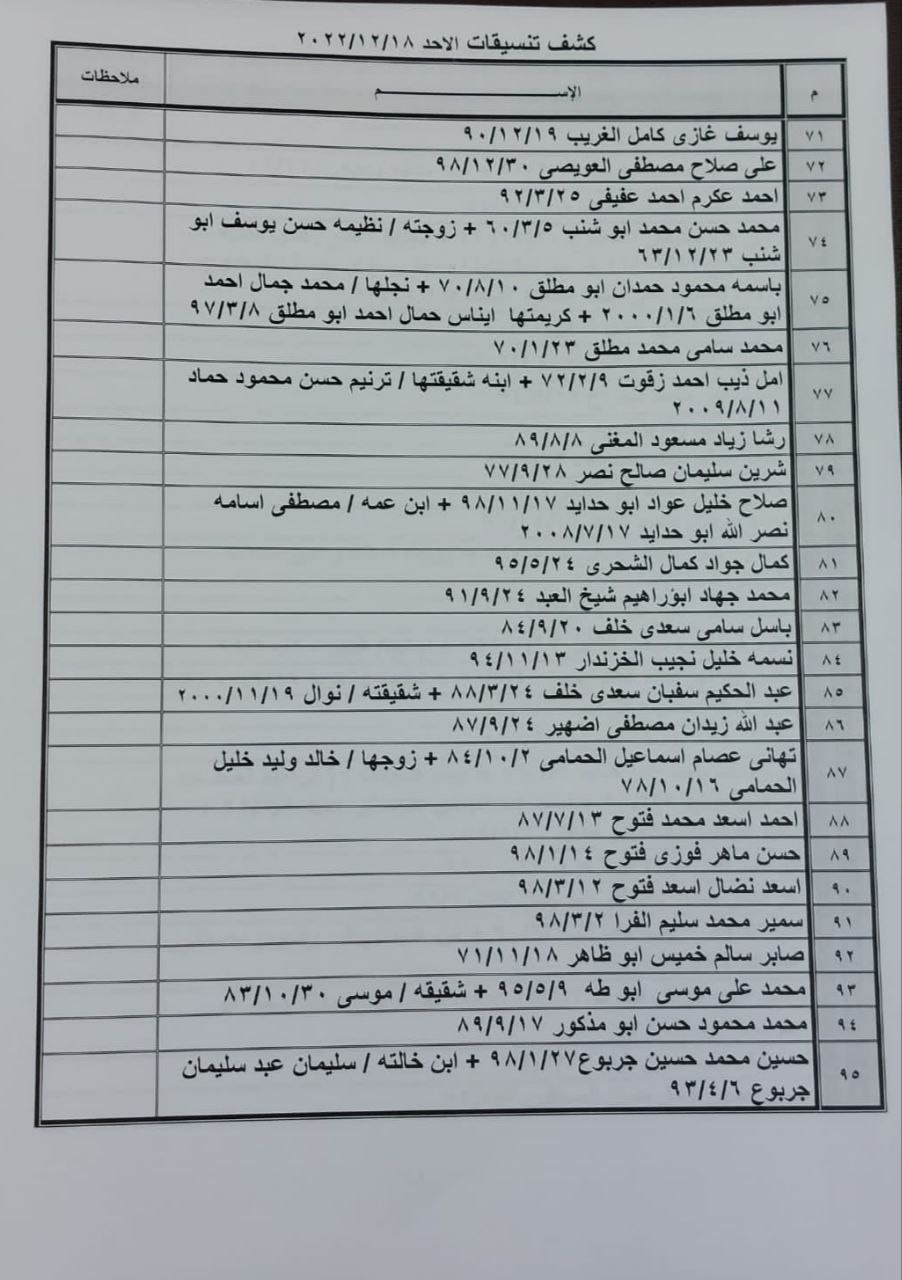 كشف تنسيقات الاحد ٢٠٢٢/١٢/١٨
م الإســــــــم ملاحظات
٧١ يوسف غازى كامل الغريب ٩٠/١٢/١٩
٧٢ على صلاح مصطفى العويصى ٩٨/١٢/٣٠
٧٣ احمد عكرم احمد عفيفى ٩٢/٣/٢٥
٧٤ محمد حسن محمد ابو شنب ٦٠/٣/٥ + زوجته / نظيمه حسن يوسف ابو
شنب ٦٣/١٢/٢٣
٧٥ باسمه محمود حمدان ابو مطلق ٧٠/٨/١٠ + نجلها / محمد جمال احمد
ابو مطلق ٢٠٠٠/١/٦ + كريمتها ايناس حمال احمد ابو مطلق ٩٧/٣/٨
٧٦ محمد سامى محمد مطلق ٧٠/١/٢٣
٧٧ امل ذيب احمد زقوت ٧٢/٢/٩ + ابنه شقيقتها / ترنيم حسن محمود حماد
٢٠٠٩/٨/١١
٧٨ رشا زياد مسعود المغنى ٨٩/٨/٨
٧٩ شرين سليمان صالح نصر ٧٧/٩/٢٨
٨٠ صلاح خليل عواد ابو حدايد ٩٨/١١/١٧ + ابن عمه / مصطفى اسامه
نصر الله ابو حدايد ٢٠٠٨/٧/١٧
٨١ كمال جواد كمال الشحرى ٩٥/٥/٢٤
٨٢ محمد جهاد ابؤراهيم شيخ العبد ٩١/٩/٢٤
٨٣ باسل سامى سعدى خلف ٨٤/٩/٢٠
٨٤ نسمه خليل نجيب الخزندار ٩٤/١١/١٣
٨٥ عبد الحكيم سفبان سعدى خلف ٨٨/٣/٢٤ + شقيقته / نوال ٢٠٠٠/١١/١٩
٨٦ عبد الله زيدان مصطفى اضهير ٨٧/٩/٢٤
٨٧ تهانى عصام اسماعيل الحمامى ٨٤/١٠/٢ + زوجها / خالد وليد خليل
الحمامى ٧٨/١٠/١٦
٨٨ احمد اسعد محمد فتوح ٨٧/٧/١٣
٨٩ حسن ماهر فوزى فتوح ٩٨/١/١٤
٩٠ اسعد نضال اسعد فتوح ٩٨/٣/١٢
٩١ سمير محمد سليم الفرا ٩٨/٣/٢
٩٢ صابر سالم خميس ابو ظاهر ٧١/١١/١٨
٩٣ محمد على موسى ابو طه ٩٥/٥/٩ + شقيقه / موسى ٨٣/١٠/٣٠
٩٤ محمد محمود حسن ابو مذكور ٨٩/٩/١٧
٩٥ حسين محمد حسين جربوع٩٨/١/٢٧ + ابن خالته / سليمان عبد سليمان
جربوع ٩٣/٤/٦